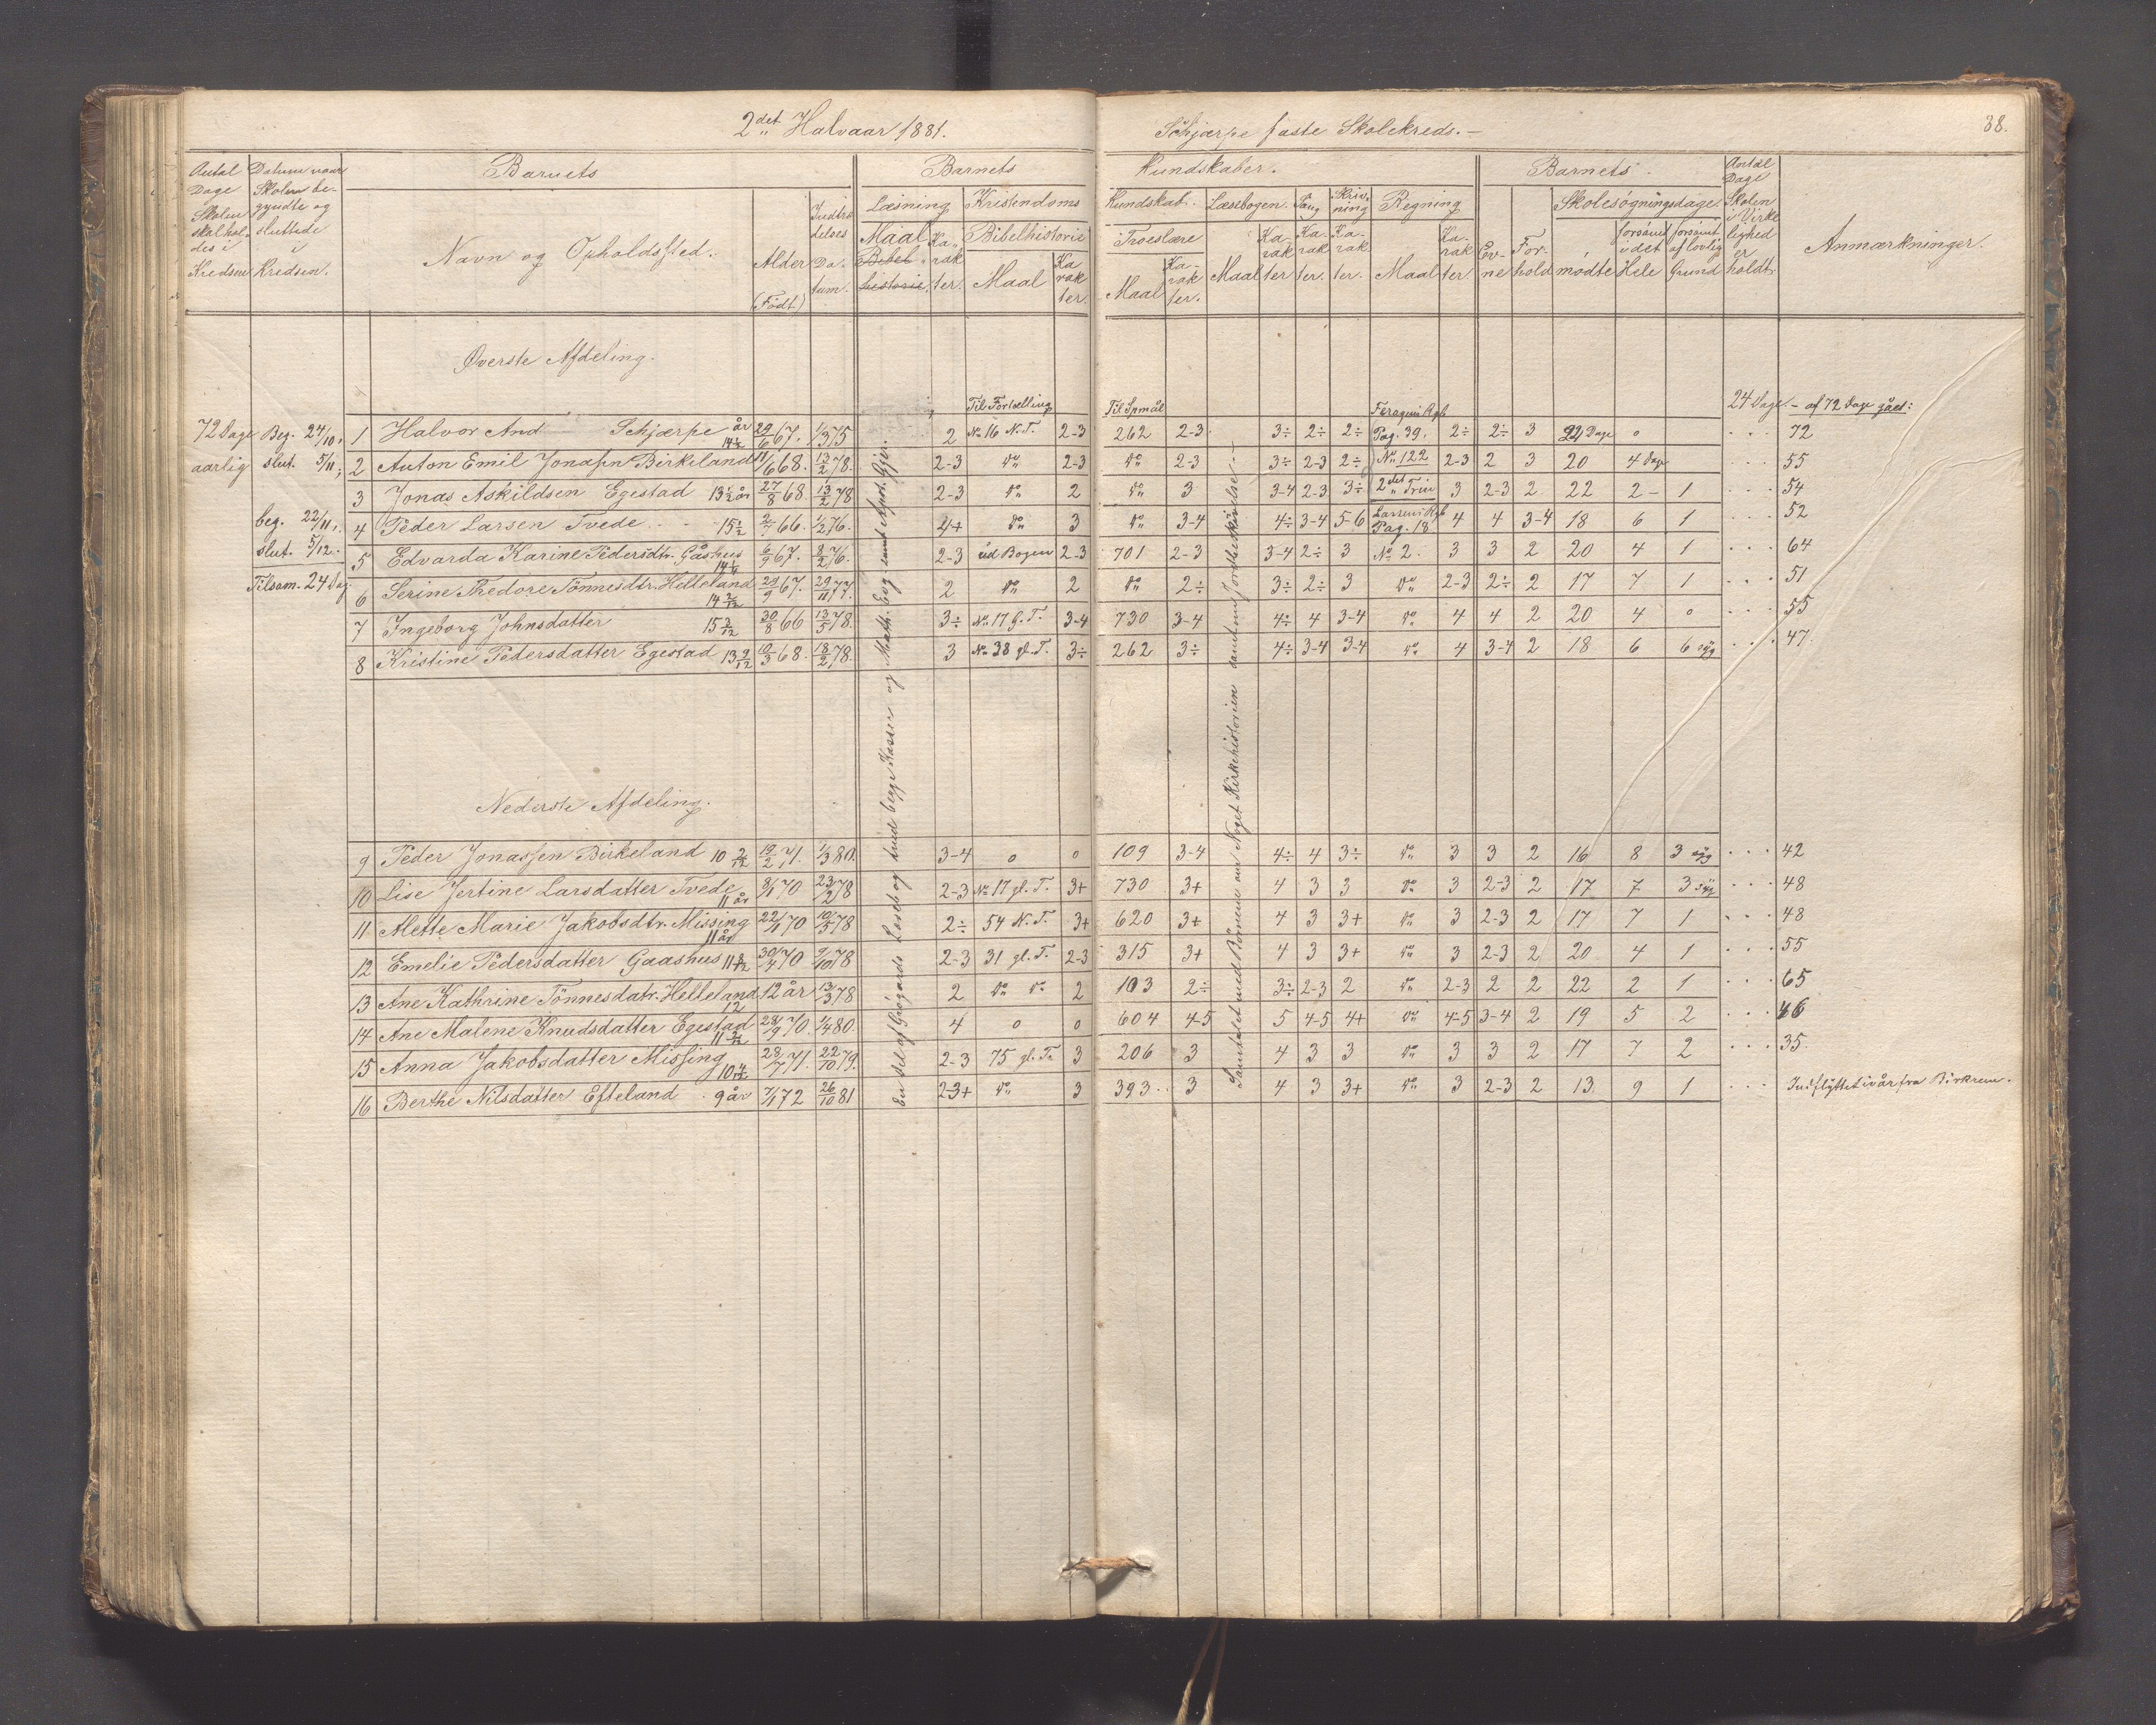 2det Halvaar 1881.
Schjærpe faste Skolekreds. —
38.
Antal Dage Skolen skal holdes i Kredsen
Datum naar Skolen begyndte og sluttede i Kredsen.
Barnets
Navn og Opholdssted.
Alder (Født)
Indtrædelses Datum.
Barnets
Læsning
Maal
Bibelhistorie.
Karakter.
Kristendoms
Bibelhistorie
Maal
Karakter.
Kundskaber.
Kundskab.
Troeslære
Maal
Karakter.
Læsebogen.
Maal
Karakter
Sang
Karakter.
Skrivning
Karakter.
Regning
Maal
Karakter.
Barnets
Evne
Forhold
Skolesøgningsdage
mødte
forsømt i det Hele
forsømt af lovlig Grund
Antal Dage Skolen i Virkelighed er holdt.
Anmærkninger.
Øverste Afdeling.
Til Fortælling
Til Spmål
24 Dage – af 72 Dage gået:
72 Dage aarlig
Beg. 24/10,
slut. 5/11,
beg. 22/11,
slut. 5/12.
Tilsam. 24 Dag
1 Halvor And Schjærpe 14½ år 29/6 67. 1/3 75 2 No 16 N.T. 2-3 262 2-3 3÷ 2÷ 2÷ Pag. 39. 2÷ 2÷ 3 24 Dage 0 72
2 Anton Emil Jonassn Birkeland 11/6 68. 13/2 78. 2-3 do 2-3 do 2-3 3÷ 2-3 2÷ No 122 2-3 2 3 20 4 Dage 55
3 Jonas Askildsen Egestad 13½ år 27/8 68 13/2 78 2-3 do 2 do 3 3-4 2-3 3÷ 2det Trin 3 2-3 2 22 2 – 1 54
4 Peder Larsen Tvede 15½ 2/7 66. 1/2 76. 4+ do 3 do 3-4 4÷ 3-4 5-6 Pag. 18 4 4 3-4 18 6 1 52
5 Edvarda Karine Pedersdtr. Gåshus 14¼ 6/9 67. 8/2 76. 2-3 ud Bogen 2-3 701 2-3 3-4 2÷ 3 No 2. 3 3 2 20 4 1 64
6 Serine Thedore Tønnesdtr. Helleland 14 2/12 29/9 67. 29/11 77. 2 do 2 do 2÷ 3÷ 2÷ 3 do 2-3 2÷ 2 17 7 1 51
7 Ingeborg Johnsdatter 15 3/12 30/8 66 13/5 78. 3÷ No 17 G.T. 3-4 730 3-4 4÷ 4 3-4 do 4 4 2 20 4 0 55
8 Kristine Pedersdatter Egestad 13 9/12 10/3 68. 18/2 78. 3 No 38 gl. T. 3÷ 262 3÷ 4÷ 3-4 3-4 do 4 3-4 2 18 6 6 syg 47.
Nederste Afdeling.
9 Peder Jonassen Birkeland 10 9/12 19/2 71. 1/3 80. 3-4 0 0 109 3-4 4÷ 4 3÷ do 3 3 2 16 8 3 syg 42
10 Lise Jertine Larsdatter Tvede 11 år 8/1 70 23/2 78 2-3 No 17 gl. T. 3+ 730 3+ 4 3 3 do 3 2-3 2 17 7 3 syg 48
11 Mette Marie Jakobsdtr. Missing 11 år 22/11 70 10/5 78 2÷ 54 N.T. 3+ 620 3+ 4 3 3+ do 3 2-3 2 17 7 1 48
12 Emelie Pedersdatter Gaashus 11 8/12 30/4 70 9/10 78 2-3 31 gl. T. 2-3 315 3+ 4 3 3+ do 3 2-3 2 20 4 1 55
13 Ane Kathrine Tønnesdatr. Helleland 12 år 13/3 78 2 do do 2 103 2÷ 3÷ 2-3 2 do 2-3 2 2 22 2 1 65
14 Ane Malene Knudsdatter Egestad 11 2/12 28/9 70. 1/4 80. 4 0 0 604 4-5 5 4-5 4+ do 4-5 3-4 2 19 5 2 46
15 Anna Jakobsdatter Missing 10 4/12 28/7 71. 22/10 79. 2-3 75 gl. T. 3 206 3 4 3 3 do 3 3 2 17 7 2 35.
16 Berthe Nilsdatter Efteland 9 år 7/1 72 26/10 81 2-3+ do 3 393. 3 4 3 3+ do 3 2-3 2 13. 9 1 Indflyttet i år fra Birkrem.
En Del af Grøgaards Læseb. og hvid begge Klasser og Math. Evg. samt Apost. Gjer.
Samtalet med Børnene om Noget Kirkehistorien samt om Jordbeskrivelse —